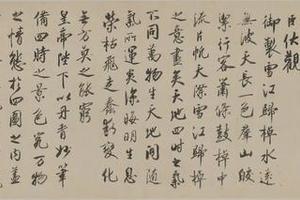 臣伏觀
御製雪江歸棹水遠
無波天長一色群山皎
潔行客蕭條鼓棹中
流片帆天際雪江歸棹
之意盡矣天地四時之氣
不同萬物生天地間隨
氣所運炎涼晦明生息
榮枯飛走蠢動變化
無方莫之能窮
皇帝陛下以丹青妙筆
備四時之景色究萬物
之情態於四圖之內蓋